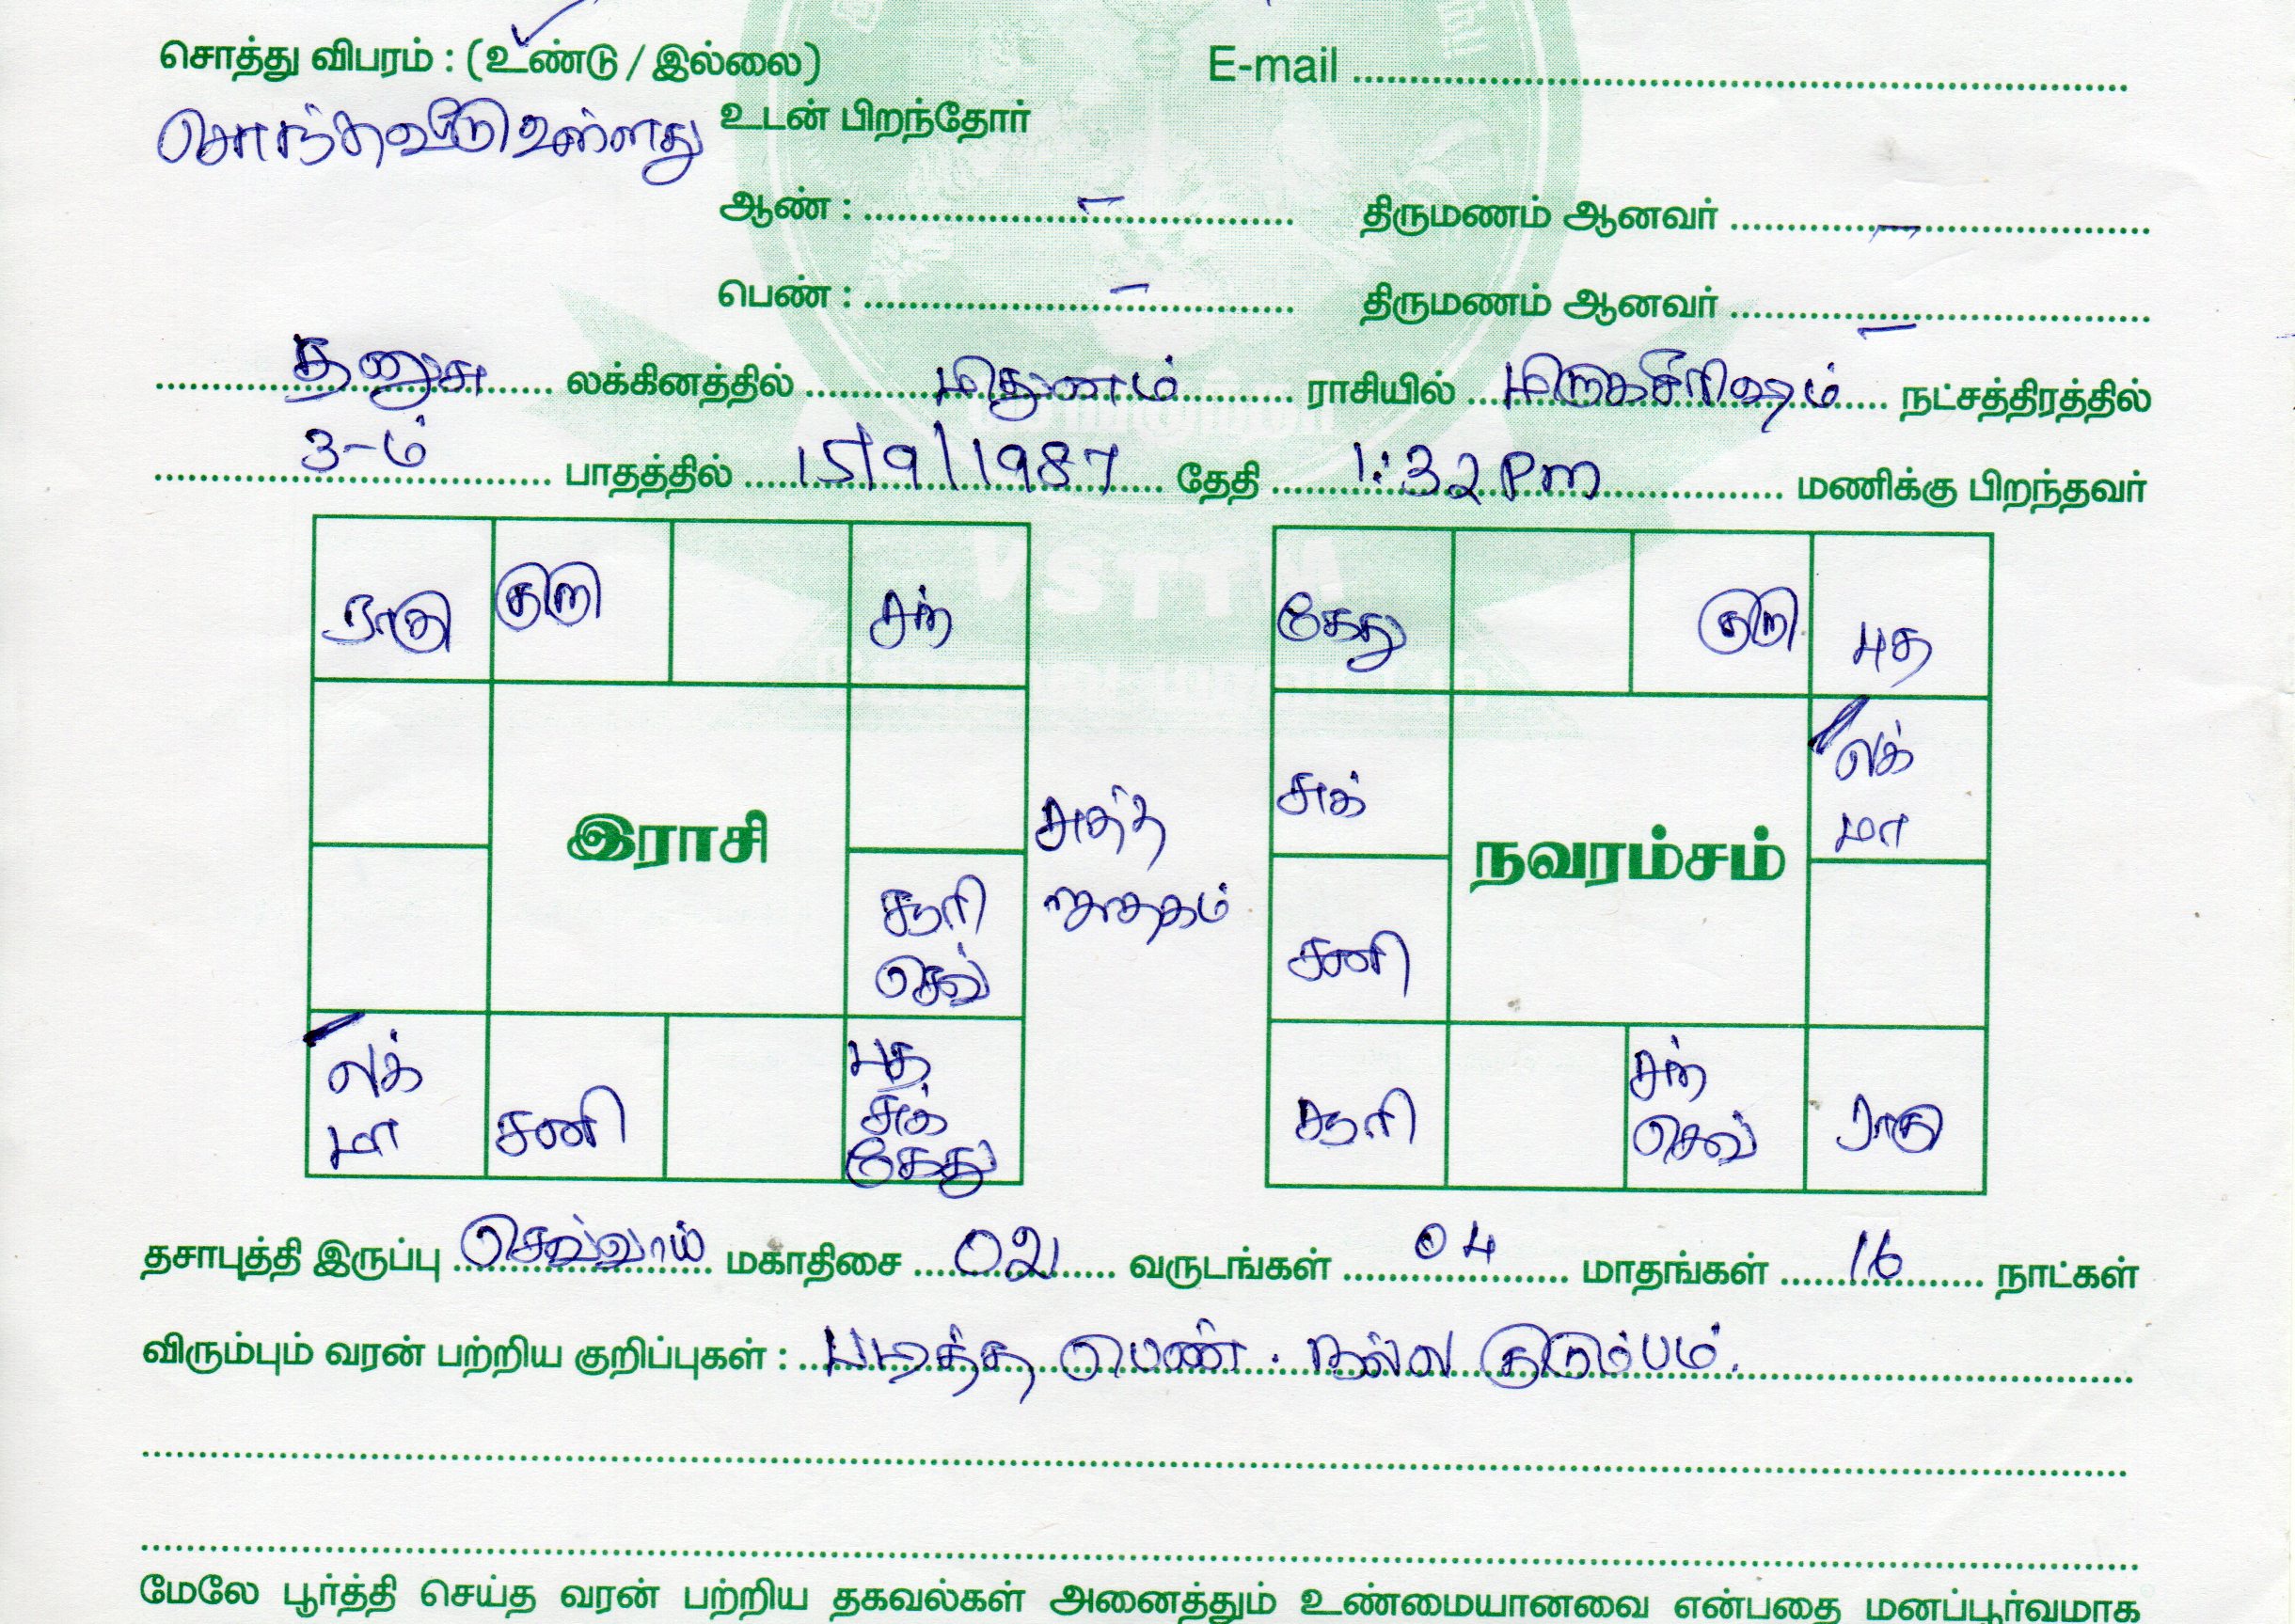 சொத்து விபரம் : (உண்டு / இல்லை) E-mail
சொந்தவீடு உள்ளது உடன் பிறந்தோர்
ஆண் : – திருமணம் ஆனவர் –
பெண் : – திருமணம் ஆனவர் –
தனுசு லக்கினத்தில் மிதுனம் ராசியில் மிருகசீரிஷம் நட்சத்திரத்தில்
3-ம் பாதத்தில் 15/9/1987 தேதி 1:32 Pm மணிக்கு பிறந்தவர்
VSTTM
ராகு குரு சந் கேது குரு புத
லக் மா
சுக்
இராசி சுத்த நவரம்சம்
ஜாதகம்
சூரி செவ் சனி
லக் மா சனி புத சுக் கேது சூரி சந் செவ் ராகு
தசாபுத்தி இருப்பு செவ்வாய் மகாதிசை 02 வருடங்கள் 04 மாதங்கள் 16 நாட்கள்
விரும்பும் வரன் பற்றிய குறிப்புகள் : படித்த பெண். நல்ல குடும்பம்.
மேலே பூர்த்தி செய்த வரன் பற்றிய தகவல்கள் அனைத்தும் உண்மையானவை என்பதை மனப்பூர்வமாக